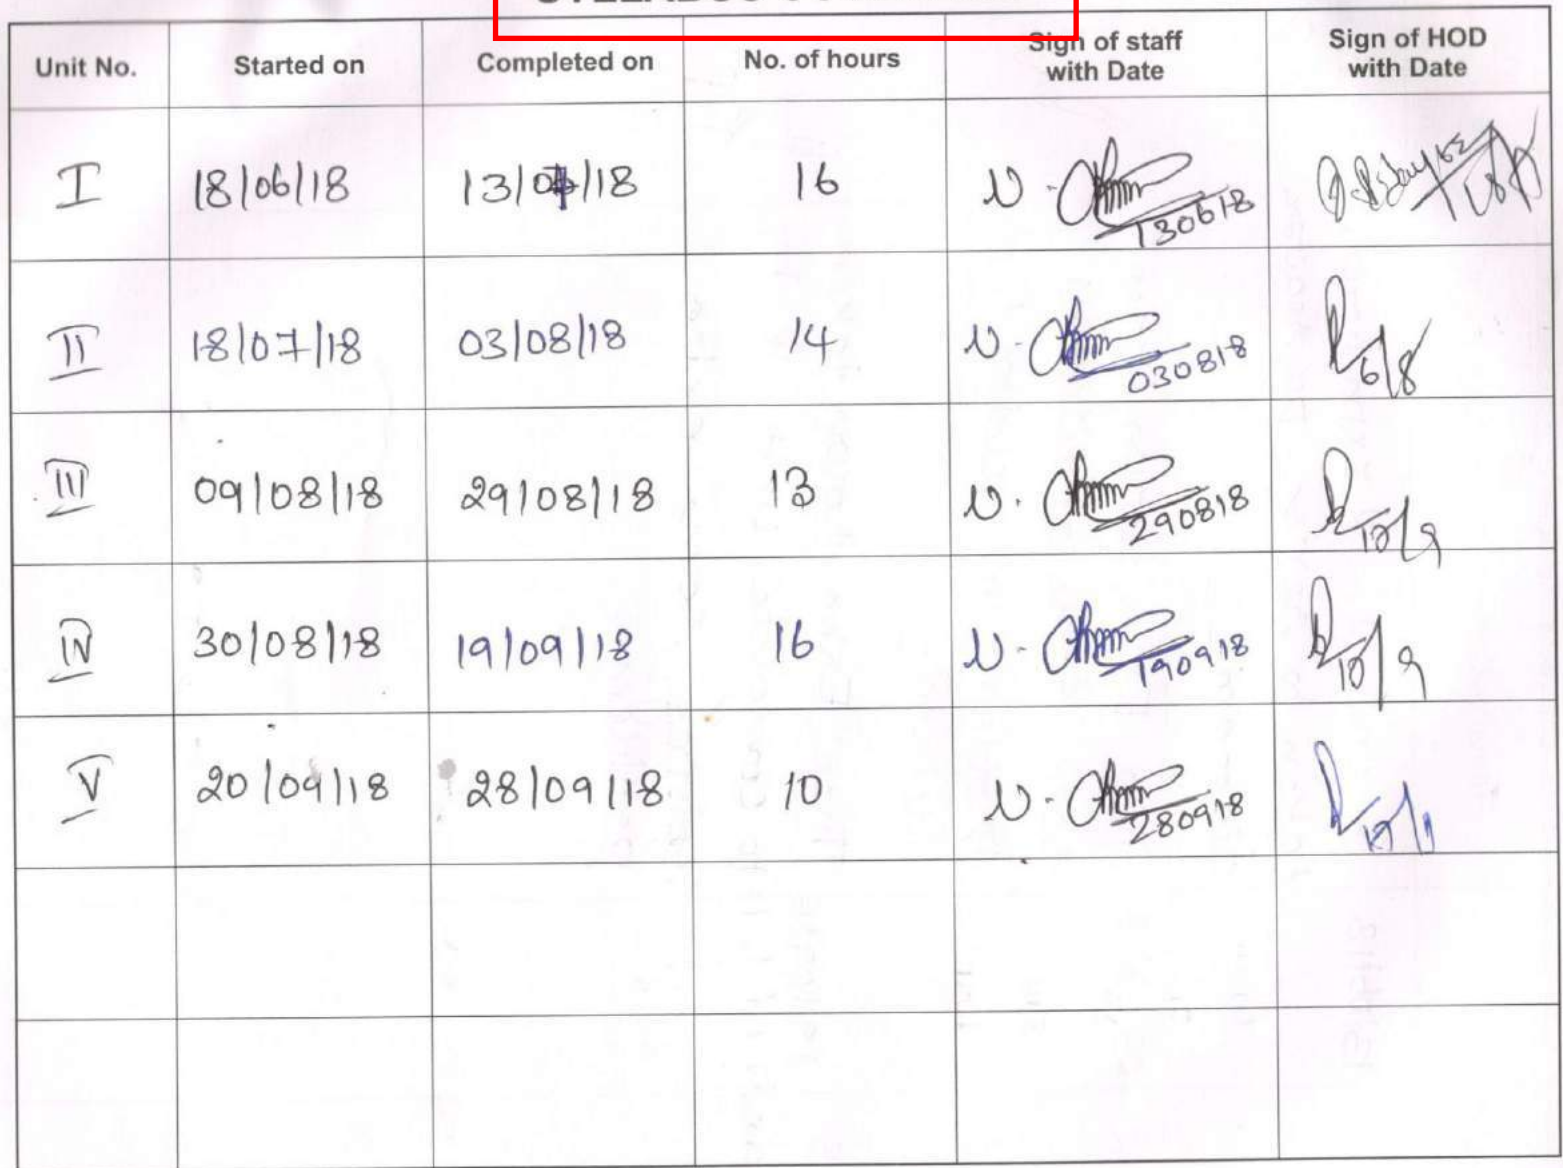 Unit No. Started on Completed on No. of hours Sign of staff with Date Sign of HOD with Date
I 18/06/18 13/07/18 16 130618
II 18/07/18 03/08/18 14 030818 6/8
III 09/08/18 29/08/18 13 290818 10/9
IV 30/08/18 19/09/18 16 190918 10/9
V 20/09/18 28/09/18 10 280918